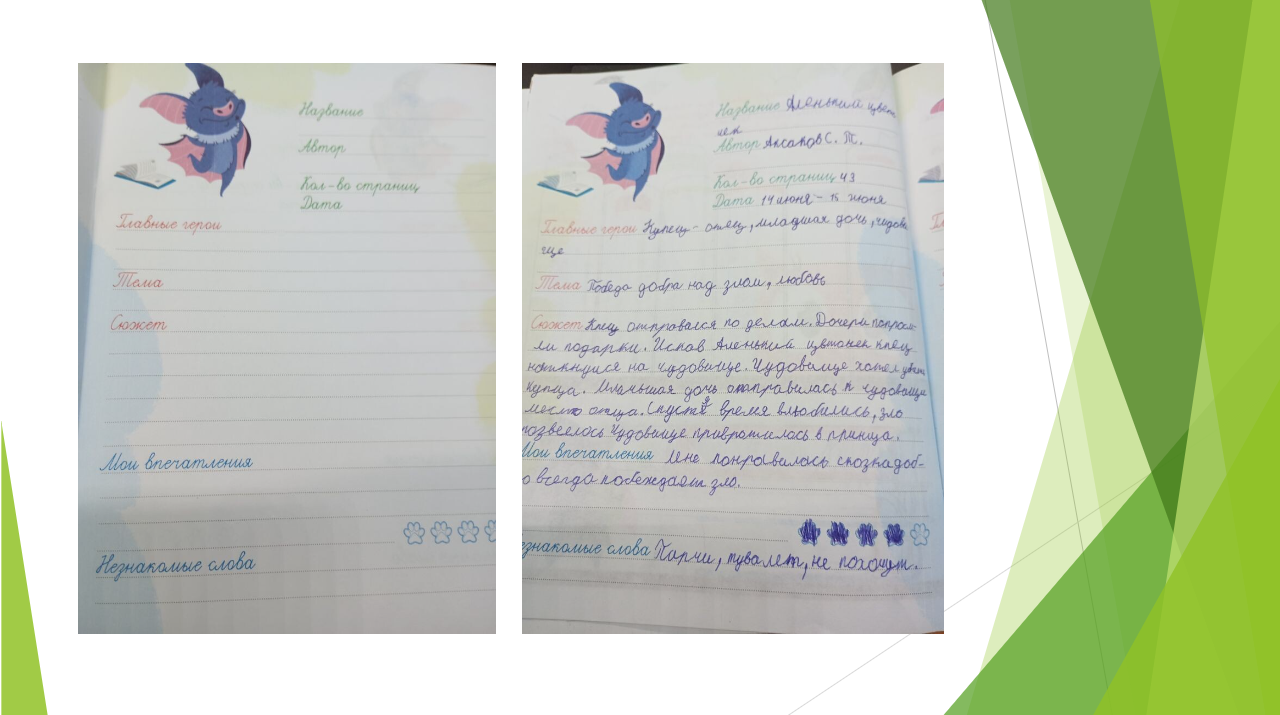 Название
Автор
Кол-во страниц
Дата
Главные герои
Тема
Сюжет
Мои впечатления
Незнакомые слова
Название Аленький цвето
чек
Автор Аксаков С. Т.
Кол-во страниц 43
Дата 14 июня - 15 июня
Главные герои Купец - отец, младшая дочь, чудови
ще
Тема Победа добра над злом, любовь
Сюжет Купец отправался по делам. Дочери попроси-
ли подарки. Искав Аленький цвточек кпец
наткнулся на чудовище. Чудовище хотел убить
купца. Младшая дочь отправилась к чудовищу
место отца. Спустя время влюбились, зло
розвеелось Чудовище привротилось в принца.
Мои впечатления Мне понравилась сказка доб-
о всегда побеждает зло.
езнакомые слова Харчи, тувалет, не похочут.